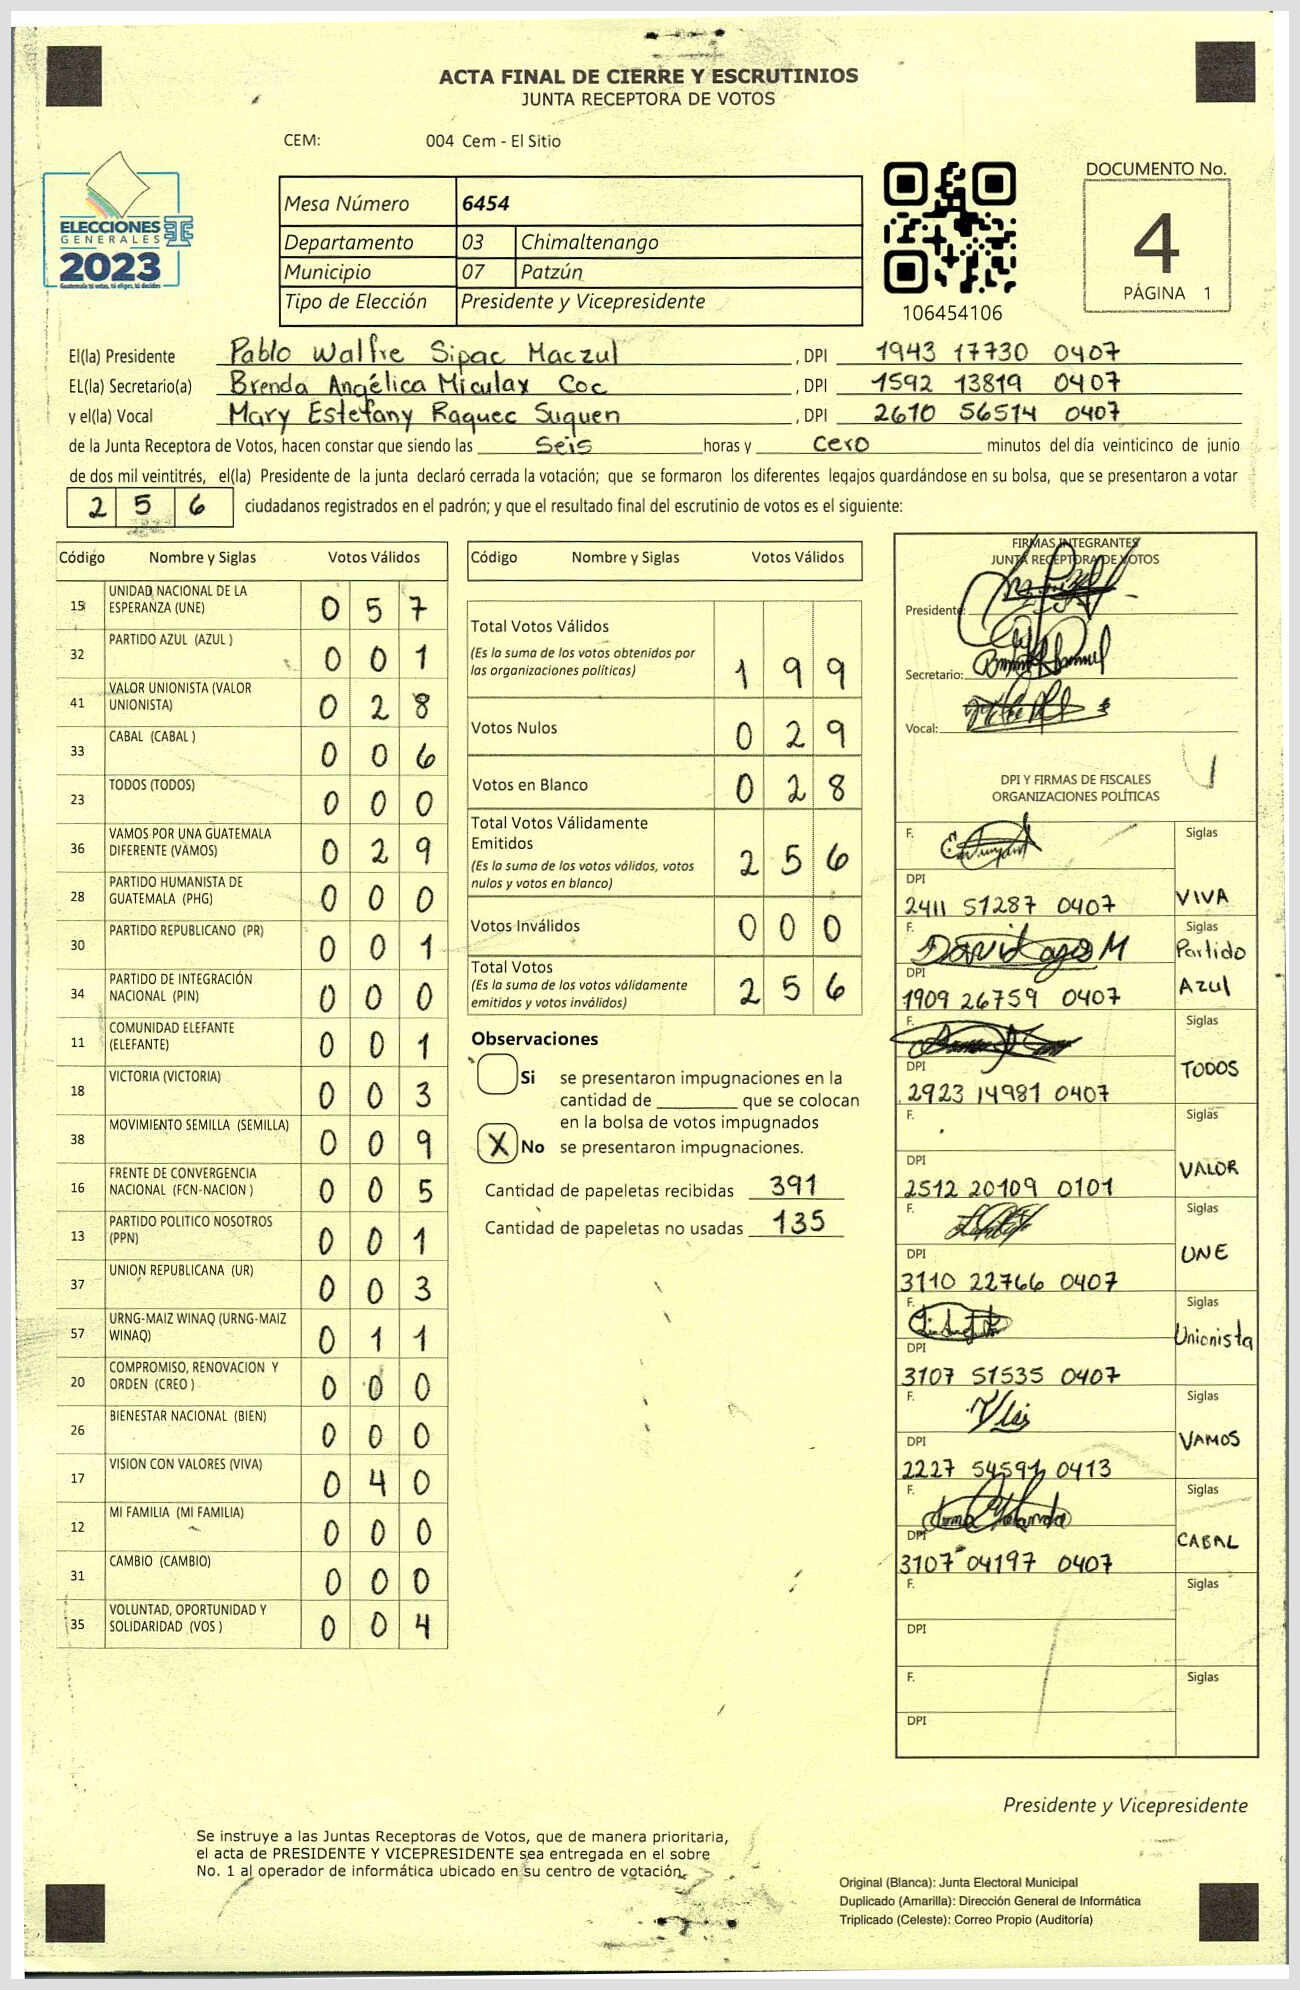 ACTA FINAL DE CIERRE Y ESCRUTINIOS
JUNTA RECEPTORA DE VOTOS
CEM: 004 Cem - El Sitio
ELECCIONES
GENERALES
2023
Guatemala tú votas, tú eliges, tú decides
Mesa Número 6454
Departamento 03 Chimaltenango
Municipio 07 Patzún
Tipo de Elección Presidente y Vicepresidente
106454106
DOCUMENTO No.
4
PÁGINA 1
El(la) Presidente Pablo Walfre Sipac Maczul , DPI 1943 17730 0407
EL(la) Secretario(a) Brenda Angélica Miculax Coc , DPI 1592 13819 0407
y el(la) Vocal Mary Estefany Raquec Suquen , DPI 2610 56514 0407
de la Junta Receptora de Votos, hacen constar que siendo las Seis horas y cero minutos del día veinticinco de junio
de dos mil veintitrés, el(la) Presidente de la junta declaró cerrada la votación; que se formaron los diferentes legajos quardándose en su bolsa, que se presentaron a votar
2 5 6 ciudadanos registrados en el padrón; y que el resultado final del escrutinio de votos es el siguiente:
Código Nombre y Siglas Votos Válidos
15 UNIDAD NACIONAL DE LA
ESPERANZA (UNE) 0 5 7
32 PARTIDO AZUL (AZUL ) 0 0 1
41 VALOR UNIONISTA (VALOR
UNIONISTA) 0 2 8
33 CABAL (CABAL ) 0 0 6
23 TODOS (TODOS) 0 0 0
36 VAMOS POR UNA GUATEMALA
DIFERENTE (VAMOS) 0 2 9
28 PARTIDO HUMANISTA DE
GUATEMALA (PHG) 0 0 0
30 PARTIDO REPUBLICANO (PR) 0 0 1
34 PARTIDO DE INTEGRACIÓN
NACIONAL (PIN) 0 0 0
11 COMUNIDAD ELEFANTE
(ELEFANTE) 0 0 1
18 VICTORIA (VICTORIA) 0 0 3
38 MOVIMIENTO SEMILLA (SEMILLA) 0 0 9
16 FRENTE DE CONVERGENCIA
NACIONAL (FCN-NACION ) 0 0 5
13 PARTIDO POLITICO NOSOTROS
(PPN) 0 0 1
37 UNION REPUBLICANA (UR) 0 0 3
57 URNG-MAIZ WINAQ (URNG-MAIZ
WINAQ) 0 1 1
20 COMPROMISO, RENOVACION Y
ORDEN (CREO ) 0 0 0
26 BIENESTAR NACIONAL (BIEN) 0 0 0
17 VISION CON VALORES (VIVA) 0 4 0
12 MI FAMILIA (MI FAMILIA) 0 0 0
31 CAMBIO (CAMBIO) 0 0 0
35 VOLUNTAD, OPORTUNIDAD Y
SOLIDARIDAD (VOS ) 0 0 4
Código Nombre y Siglas Votos Válidos
Total Votos Válidos
(Es la suma de los votos obtenidos por
las organizaciones políticas) 1 9 9
Votos Nulos 0 2 9
Votos en Blanco 0 2 8
Total Votos Válidamente
Emitidos
(Es la suma de los votos válidos, votos
nulos y votos en blanco) 2 5 6
Votos Inválidos 0 0 0
Total Votos
(Es la suma de los votos válidamente
emitidos y votos inválidos) 2 5 6
Observaciones
Si se presentaron impugnaciones en la
cantidad de ________ que se colocan
en la bolsa de votos impugnados
X No se presentaron impugnaciones.
Cantidad de papeletas recibidas 391
Cantidad de papeletas no usadas 135
FIRMAS INTEGRANTES
JUNTA RECEPTORA DE VOTOS
Presidente:
Secretario:
Vocal:
DPI Y FIRMAS DE FISCALES
ORGANIZACIONES POLÍTICAS
F. Siglas
DPI
2411 51287 0407 VIVA
F. Siglas
DPI Partido
1909 26759 0407 Azul
F. Siglas
DPI TODOS
2923 14981 0407
F. Siglas
DPI VALOR
2512 20109 0101
F. Siglas
DPI UNE
3110 22766 0407
F. Siglas
DPI Unionista
3107 51535 0407
F. Siglas
DPI VAMOS
2227 54591 0413
F. Siglas
DPI CABAL
3107 04197 0407
F. Siglas
DPI
F. Siglas
DPI
Presidente y Vicepresidente
Se instruye a las Juntas Receptoras de Votos, que de manera prioritaria,
el acta de PRESIDENTE Y VICEPRESIDENTE sea entregada en el sobre
No. 1 al operador de informática ubicado en su centro de votación.
Original (Blanca): Junta Electoral Municipal
Duplicado (Amarilla): Dirección General de Informática
Triplicado (Celeste): Correo Propio (Auditoría)